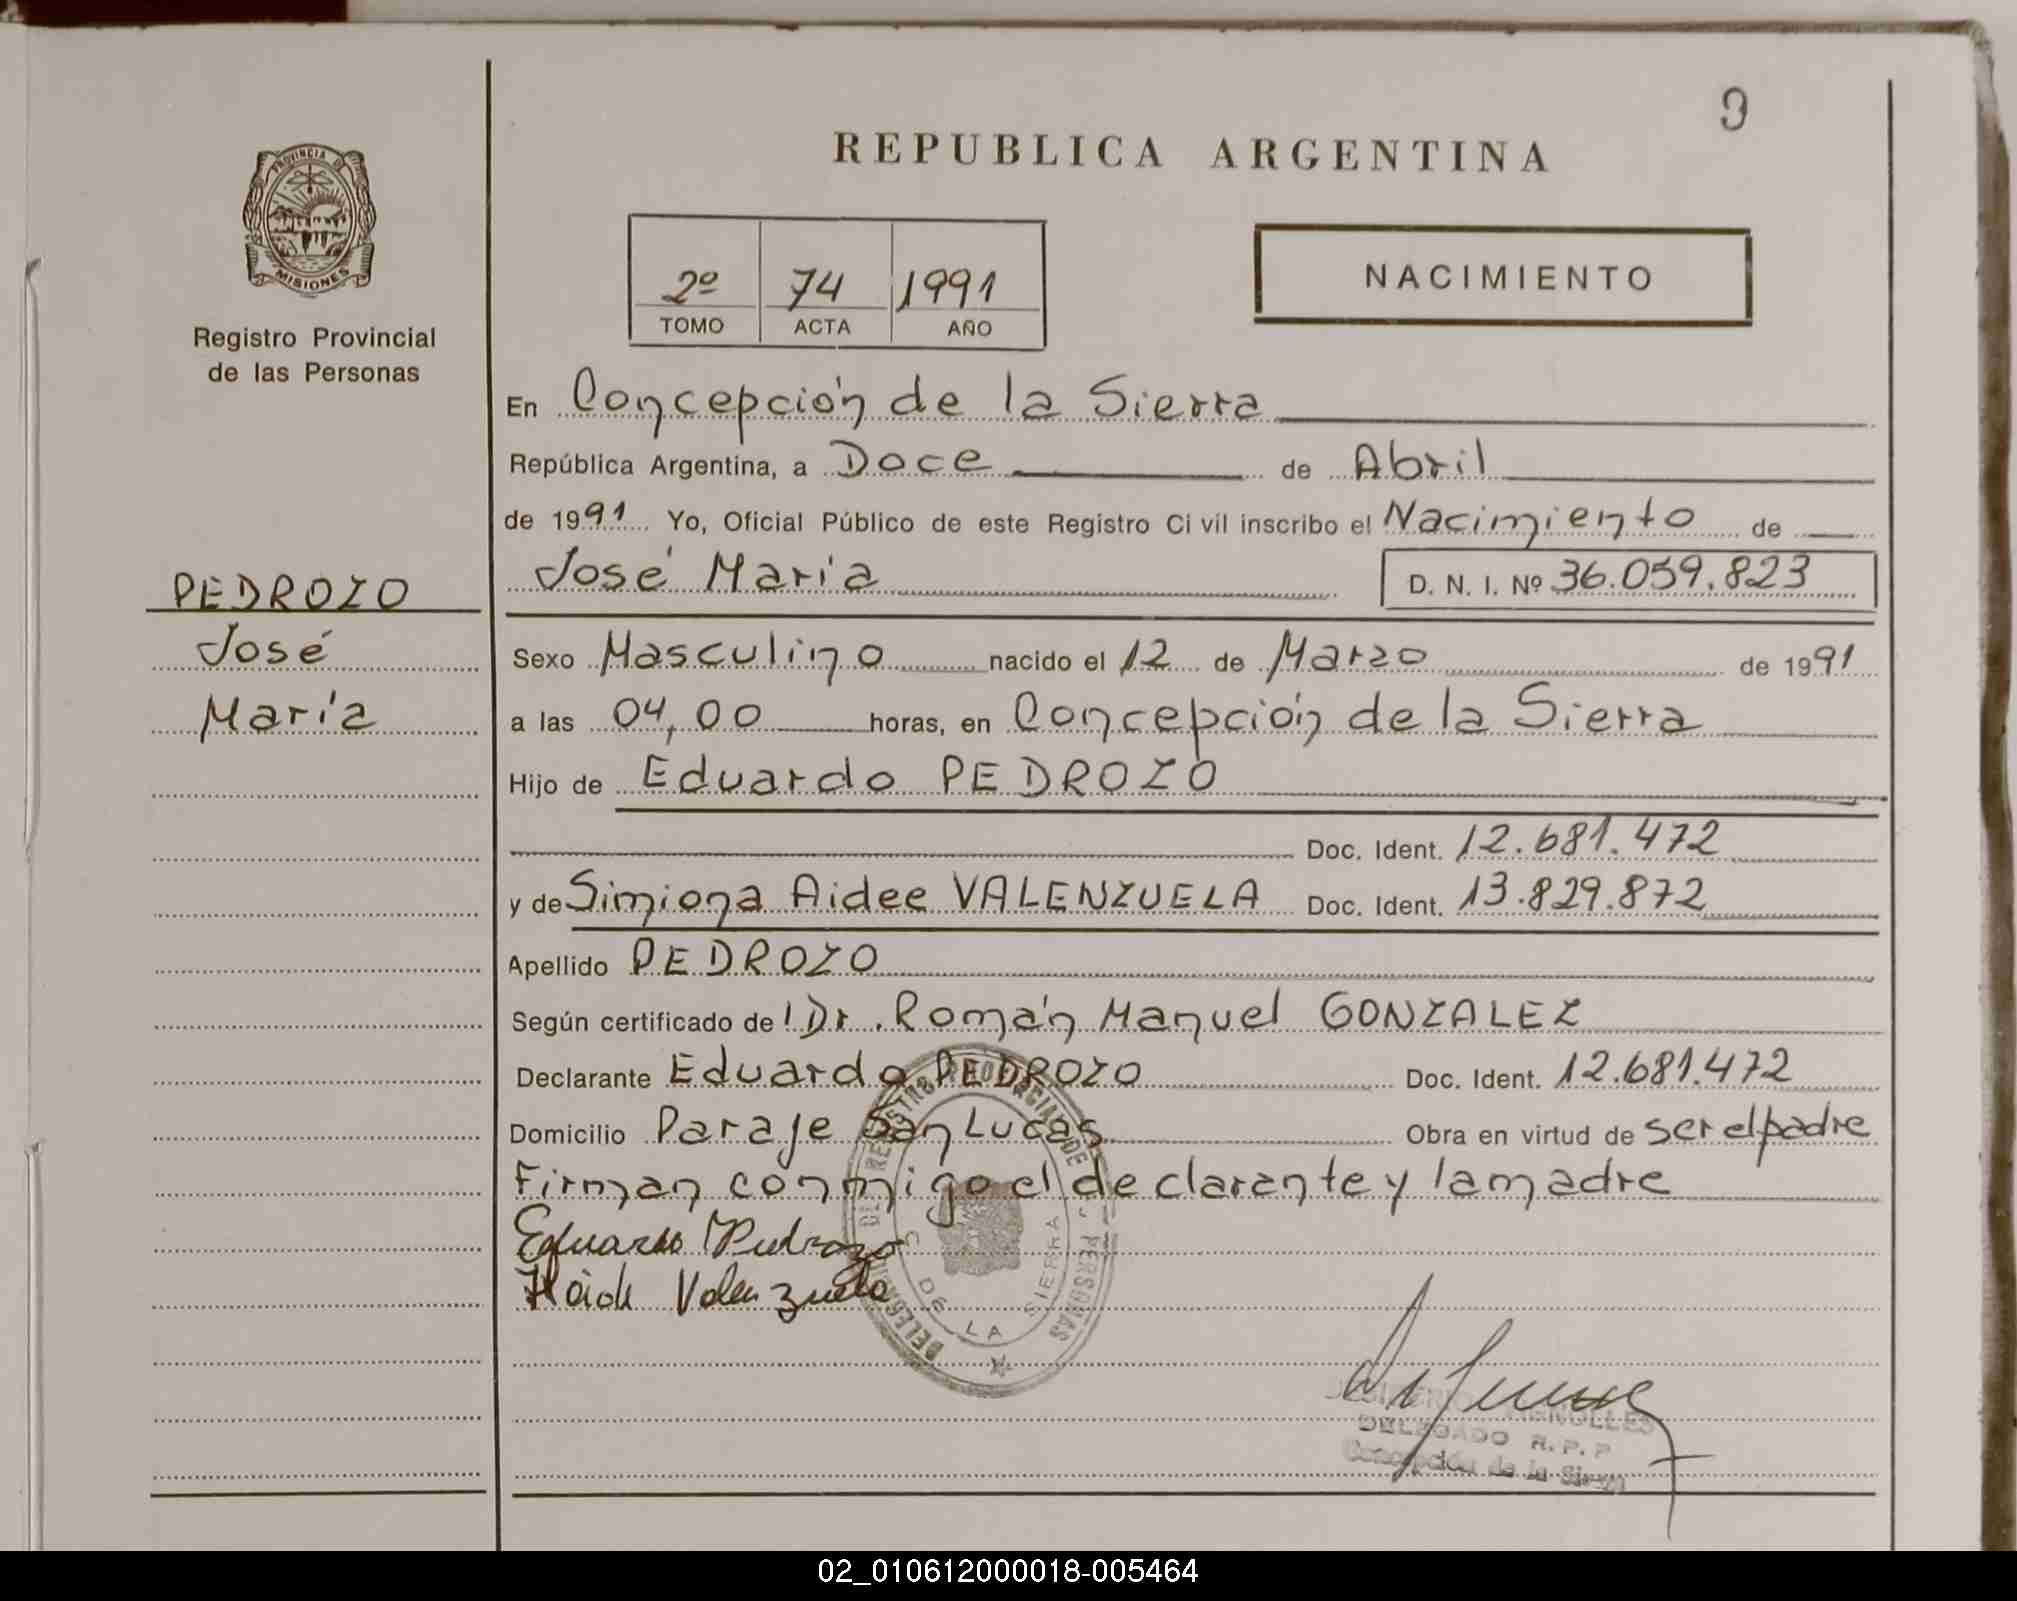 9
REPUBLICA ARGENTINA
PROVINCIA DE
MISIONES
Registro Provincial
de las Personas
2º 74 1991
TOMO ACTA AÑO
NACIMIENTO
En Concepción de la Sierra
República Argentina, a Doce de Abril
de 1991 Yo, Oficial Público de este Registro Civil inscribo el Nacimiento de
José María D. N. I. Nº 36.059.823
PEDROZO
José
María
Sexo Masculino nacido el 12 de Marzo de 1991
a las 04,00 horas, en Concepción de la Sierra
Hijo de Eduardo PEDROZO
Doc. Ident. 12.681.472
y de Simiona Aidee VALENZUELA Doc. Ident. 13.829.872
Apellido PEDROZO
Según certificado de Dr. Román Manuel GONZALEZ
Declarante Eduardo PEDROZO Doc. Ident. 12.681.472
Domicilio Paraje San Lucas Obra en virtud de ser el padre
Firman conmigo el declarante y la madre
Eduardo Pedrozo
Valenzuela
DE LA SIERRA
DELEGADO R.P.P
Concepción de la Sierra
02_010612000018-005464